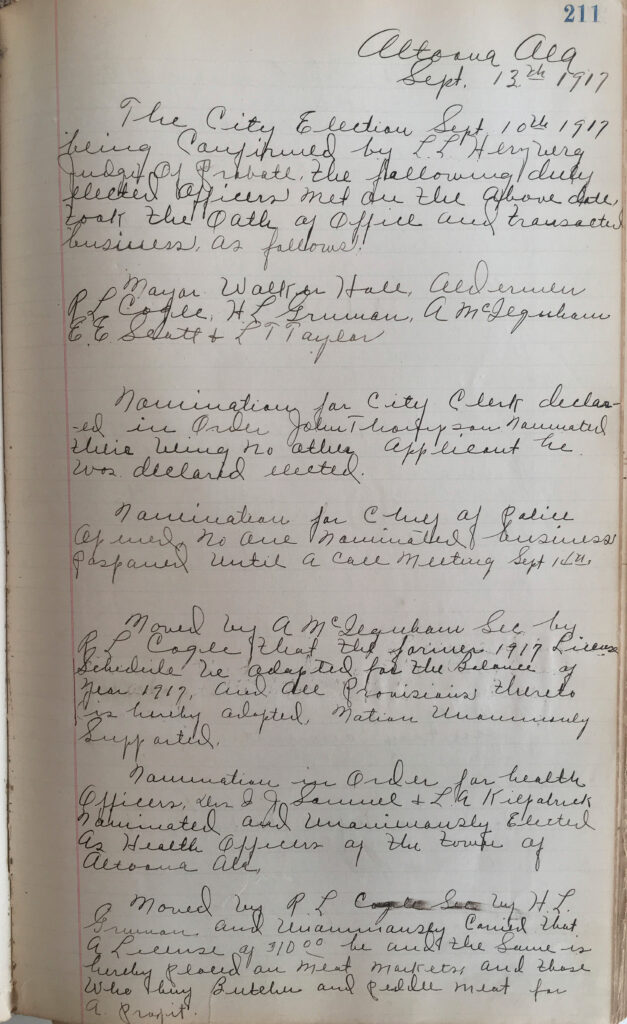 211
Altoona Ala
Sept. 13th 1917
The City Election Sept. 10th 1917
being Confirmed by L.L. Herzberg
Judge Of Probate, the following duly
elected Officers met on the above date,
took the Oath of Office and transacted
business, as follows.
Mayor Walker Hall, Aldermen
R L Cogle, H L Gruman, A McJegnham
E.E. Scott & L T Taylor
Nomination for City Clerk declar-
-ed in Order John Thompson Nominated
there being no other Applicant he
was declared elected.
Nomination for Chief of Police
Opened, No One Nominated business
Posponed Until A Call Meeting Sept 14th
Moved by A McJegnham Sec by
R. L Cogle that the former 1917 License
Schedule be adopted for the Balance of
Year 1917, and all Provisions thereto
is hereby adopted, Motion Unanimously
Supported.
Nomination in Order for health
Officers, Drs I J Samuel & L.A Kilpatrick
Nominated and Unanimously Elected
As Health Officers of the town of
Altoona Ala,
Moved by R L Cogle Sec by H.L.
Gruman and Unanimously Carried that
A License of $10.00 be and the Same is
hereby placed on Meat Markets and those
Who buy Butcher and peddle meat for
a profit.